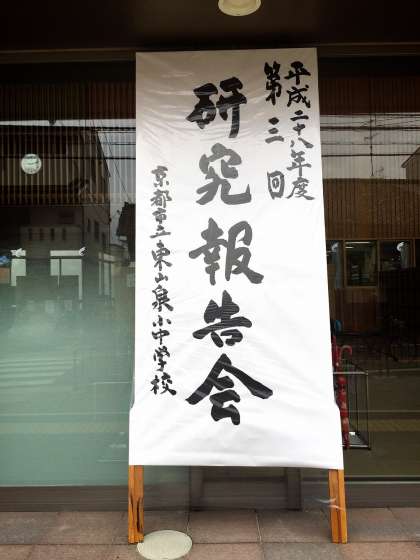 平成二十八年度
第三回
研究報告会
京都市立東山泉小中学校